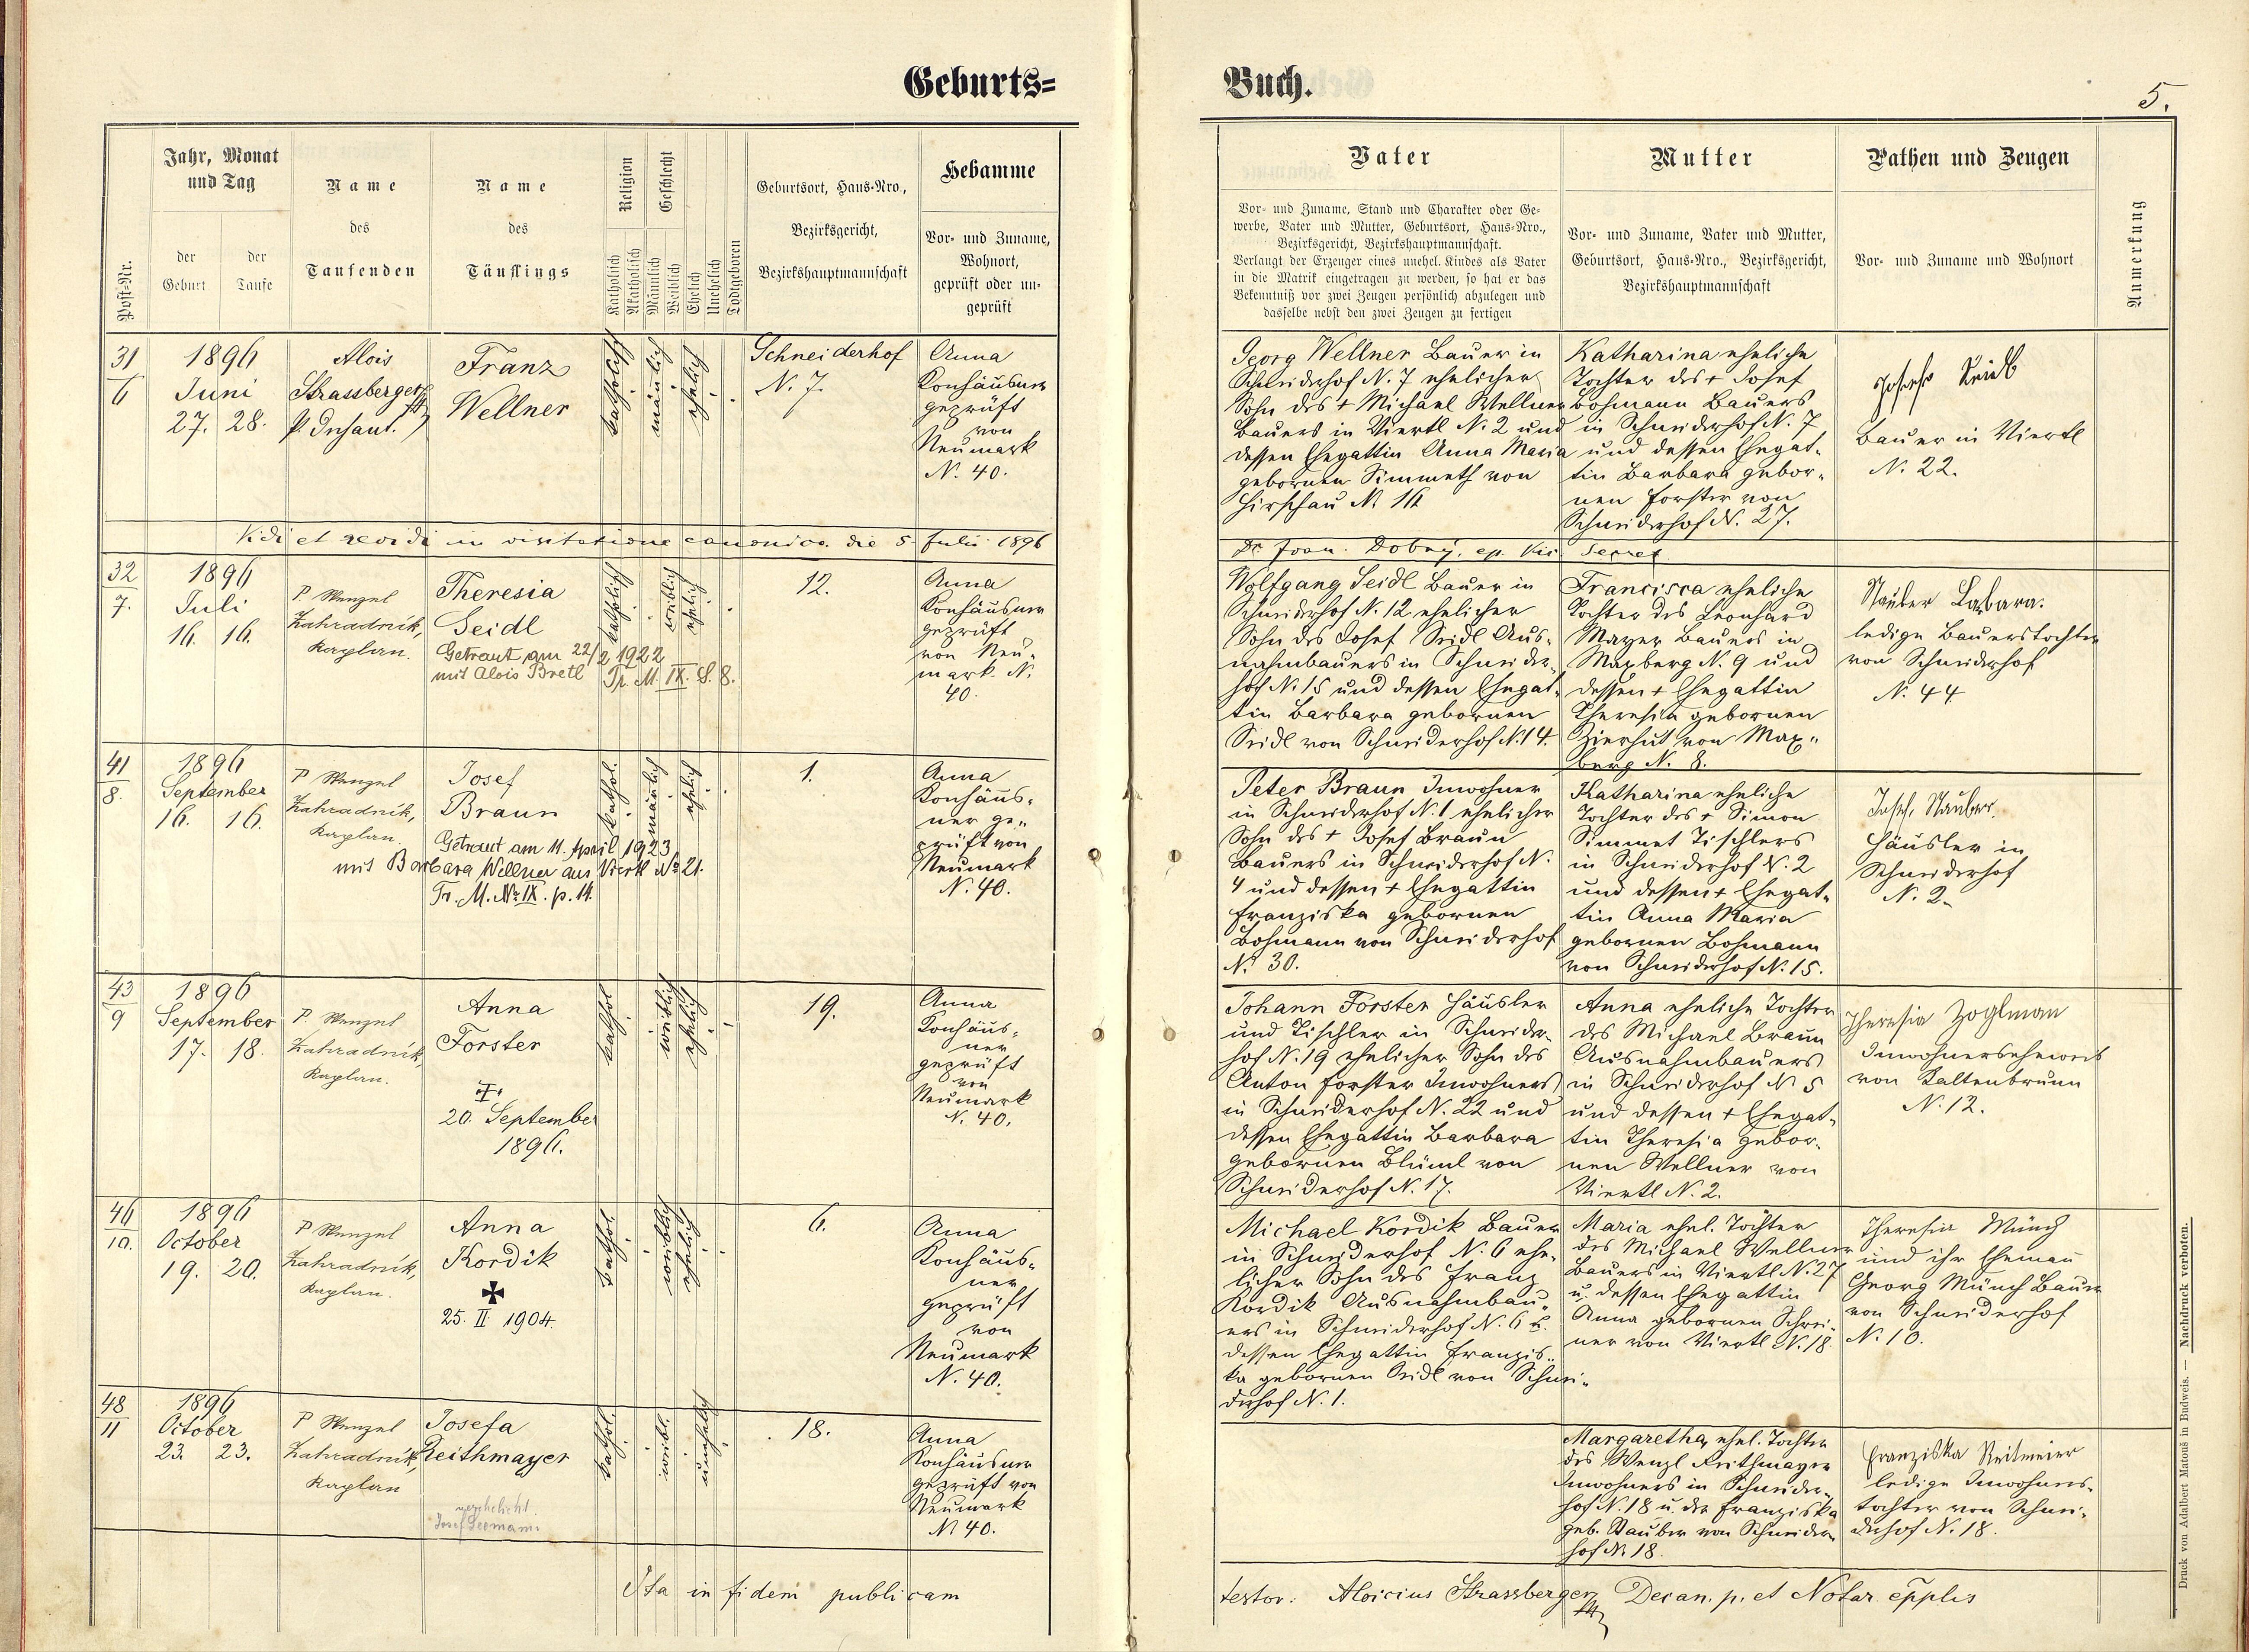 Geburts=
Buch.
5.
Post-Nr.
Jahr, Monat
und Tag
der
Geburt
der
Taufe
Name
des
Taufenden
Name
des
Täuflings
Religion
Katholisch
Akatholisch
Geschlecht
Männlich
Weiblich
Ehelich
Unehelich
Todtgeboren
Geburtsort, Haus-Nro.,
Bezirksgericht,
Bezirkshauptmannschaft
Hebamme
Vor- und Zuname,
Wohnort,
geprüft oder un-
geprüft
Vater
Vor- und Zuname, Stand und Charakter oder Ge-
werbe, Vater und Mutter, Geburtsort, Haus-Nro.,
Bezirksgericht, Bezirkshauptmannschaft.
Verlangt der Erzeuger eines unehel. Kindes als Vater
in die Matrik eingetragen zu werden, so hat er das
Bekenntniß vor zwei Zeugen persönlich abzulegen und
dasselbe nebst den zwei Zeugen zu fertigen
Mutter
Vor- und Zuname, Vater und Mutter,
Geburtsort, Haus-Nro., Bezirksgericht,
Bezirkshauptmannschaft
Pathen und Zeugen
Vor- und Zuname und Wohnort
Anmerkung
31
6
1896
Juni
27. 28.
Alois
Strassberger
Franz
Wellner
katholisch
mänlich
ehelich
Schneiderhof
N. 7.
Anna
Konhäusner
geprüft
von
Neumark
N. 40.
Georg Wellner Bauer in
Schneiderhof N. 7 ehelicher
Sohn des + Michael Wellner
Bauers in Viertl N. 2 und
dessen Ehegattin Anna Maria
gebornen Simmeth von
Hirschau N. 16
Katharina eheliche
Tochter des + Josef
Bohmann Bauers
in Schneiderhof N. 7
und dessen Ehegat-
tin Barbara gebor-
nen Forster von
Schneiderhof N. 27.
Joseph Seidl
Bauer in Viertl
N. 22.
Vidi et revidi in visitatione canonica die 5 Julii 1896
Dr Joan. Dobrý, ep. Vis. Secret.
32
7.
1896
Juli
16. 16.
P. Wenzel
Zahradník,
Kaplan.
Theresia
Seidl
Getraut am 22/2 1922
mit Alois Bretl Tr. M. IX. S. 8.
katholisch
weiblich
ehelich
12.
Anna
Konhäusner
geprüft
von Neu-
mark N.
40.
Wolfgang Seidl Bauer in
Schneiderhof N. 12 ehelicher
Sohn des Josef Seidl Aus-
nahmbauers in Schneider-
hof N. 15 und dessen Ehegat-
tin Barbara gebornen
Seidl von Schneiderhof N. 14.
Francisca eheliche
Tochter des Leonhard
Mayer Bauers in
Maxberg N. 9 und
dessen + Ehegattin
Theresia gebornen
Zierhut von Max-
berg N. 8.
Stauber Babara.
ledige Bauerstochter
von Schneiderhof
N. 44
41
8.
1896
September
16. 16.
P. Wenzel
Zahradník,
Kaplan
Josef
Braun
Getraut am 11. April 1923
mit Barbara Wellner aus Viertl No 21.
Tr. M. No IX. p. 14.
kathol.
mänlich
ehelich
1.
Anna
Konhäus-
ner ge-
prüft von
Neumark
N. 40.
Peter Braun Inwohner
in Schneiderhof N. 1 ehelicher
Sohn des + Josef Braun
Bauers in Schneiderhof N.
4 und dessen + Ehegattin
Franziska gebornen
Bohmann von Schneiderhof
N. 30.
Katharina eheliche
Tochter des + Simon
Simmet Tischlers
in Schneiderhof N. 2
und dessen + Ehegat-
tin Anna Maria
gebornen Bohmann
von Schneiderhof N. 15.
Josef Stauber.
Häusler in
Schneiderhof
N. 2.
43
9
1896
September
17. 18.
P. Wenzel
Zahradník,
Kaplan.
Anna
Forster
+
20. September
1896.
kathol
weiblich
ehelich
19.
Anna
Konhäus-
ner
geprüft
von
Neumark
N. 40.
Johann Forster Häusler
und Tischler in Schneider-
hof N. 19 ehelicher Sohn des
Anton Forster Inwohners
in Schneiderhof N. 22 und
dessen Ehegattin Barbara
gebornen Blüml von
Schneiderhof N. 17.
Anna eheliche Tochter
des Michael Braun
Ausnahmbauers
in Schneiderhof N 5
und dessen + Ehegat-
tin Theresia gebor-
nen Wellner von
Viertl N. 2.
Theresia Zoglman
Inwohnerseheweib
von Kaltenbrunn
N. 12.
46
10.
1896
October
19. 20.
P. Wenzel
Zahradník,
Kaplan.
Anna
Kordik
✠
25. II. 1904.
kathol.
weiblich
ehelich
6.
Anna
Konhäus-
ner
geprüft
von
Neumark
N. 40.
Michael Kordik Bauer
in Schneiderhof N. 6 ehe-
licher Sohn des Franz
Kordik Ausnahmbau-
ers in Schneiderhof N. 6 u.
dessen Ehegattin Franzis-
ka gebornen Seidl von Schnei-
derhof N. 1.
Maria ehel. Tochter
des Michael Wellner
Bauers in Viertl N. 27
u. dessen Ehegattin
Anna gebornen Schrei-
ner von Viertl N. 18.
Theresia Münch
und ihr Ehemañ
Georg Münch Bauer
von Schneiderhof
N. 10.
48
11
1896
October
23. 23.
P. Wenzel
Zahradník,
Kaplan
Josefa
Reithmayer
verehelicht.
kathol.
weibl.
unehelich
18.
Anna
Konhäusner
geprüft von
Neumark
N 40.
Margaretha, ehel. Tochter
des Wenzl Reithmayer
Inwohners in Schneider-
hof N. 18 u. der Franziska
geb. Stauber von Schneider-
hof N. 18.
Franziska Reitmeier
ledige Inwohners-
tochter von Schnei-
derhof N. 18.
Ita in fidem publicam
testor: Aloicius Strassberger Decan. p. et Notar. epplis
Druck von Adalbert Matouš in Budweis. — Nachdruck verboten.